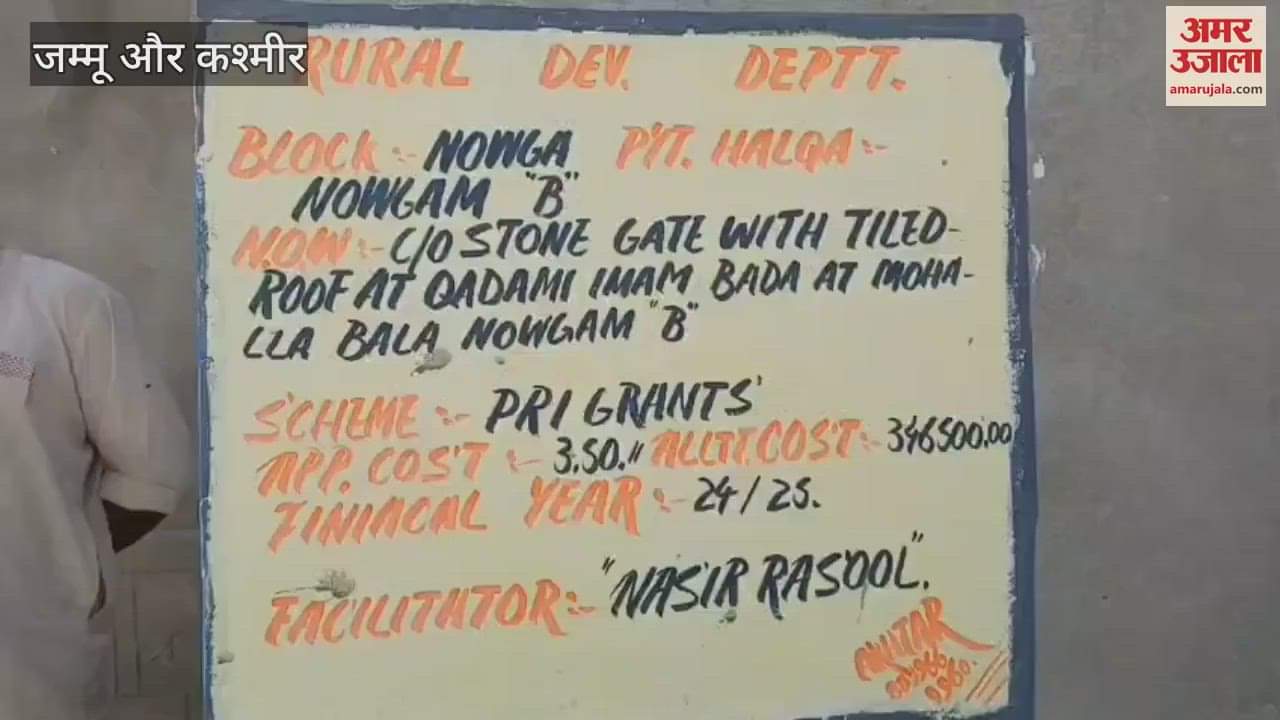 जम्मू और कश्मीर
अमर
उजाला
amarujala.com
RURAL DEV. DEPTT.
BLOCK :- NOWGA PYT. HALQA :-
NOWGAM "B"
N.O.W :- C/O STONE GATE WITH TILED-
ROOF AT QADAMI IMAM BADA AT MOHA-
LLA BALA NOWGAM "B"
SCHEME :- PRI GRANTS'
APP. COST :- 3.50." ALLTT. COST :- 346500.00
FINIACAL YEAR :- 24/25.
FACILITATOR :- "NASIR RASOOL".